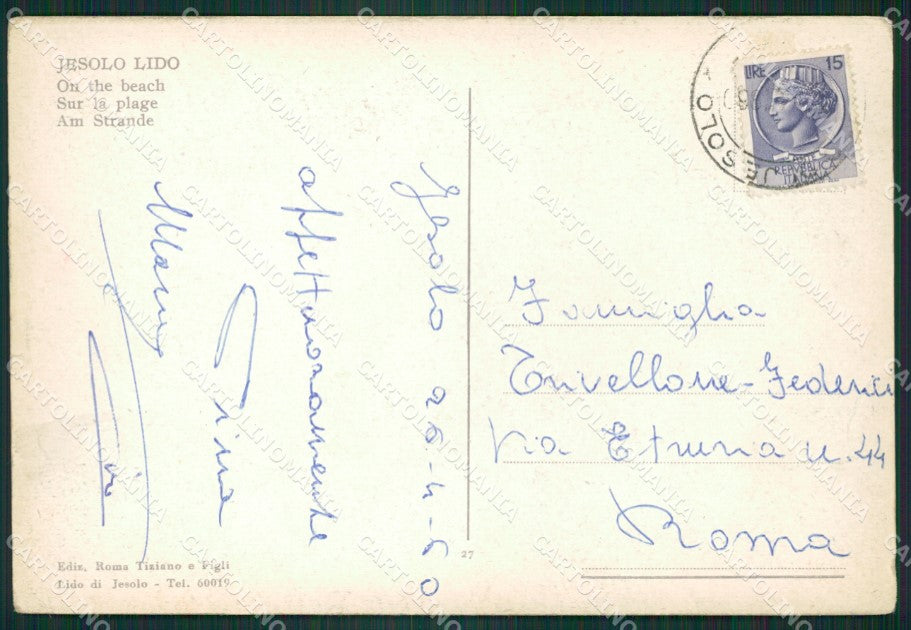 JESOLO LIDO
On the beach
Sur la plage
Am Strande
Jesolo 26-4-60
affettuosamente
Gina
LIRE 15
REPVBBLICA
ITALIANA
JESOLO
Famiglia
Trivellone-Federici
Via Etruria n. 44
Roma
27
Ediz. Roma Tiziano e Figli
Lido di Jesolo - Tel. 60019
CARTOLINOMANIA